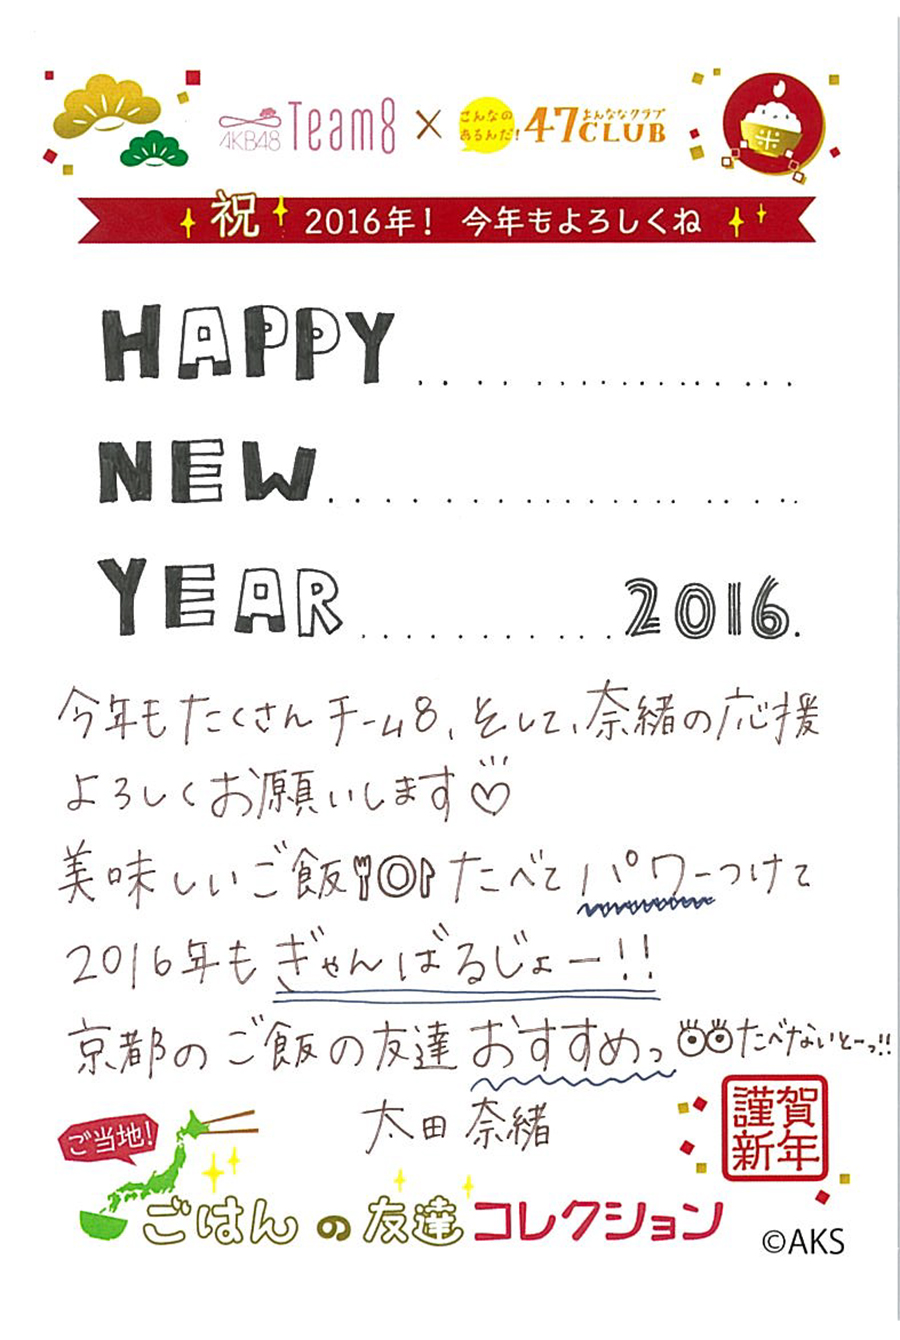 AKB48 Team8 × こんなのあるんだ! 47CLUB よんななクラブ
米
祝 2016年! 今年もよろしくね
HAPPY
NEW
YEAR 2016.
今年もたくさんチーム8、そして、奈緒の応援
よろしくお願いします♡
美味しいご飯たべてパワーつけて
2016年もぎゃんばるじょー!!
京都のご飯の友達おすすめっ たべないとーっ!!
太田 奈緒
謹賀
新年
ご当地!
ごはんの友達コレクション
©AKS